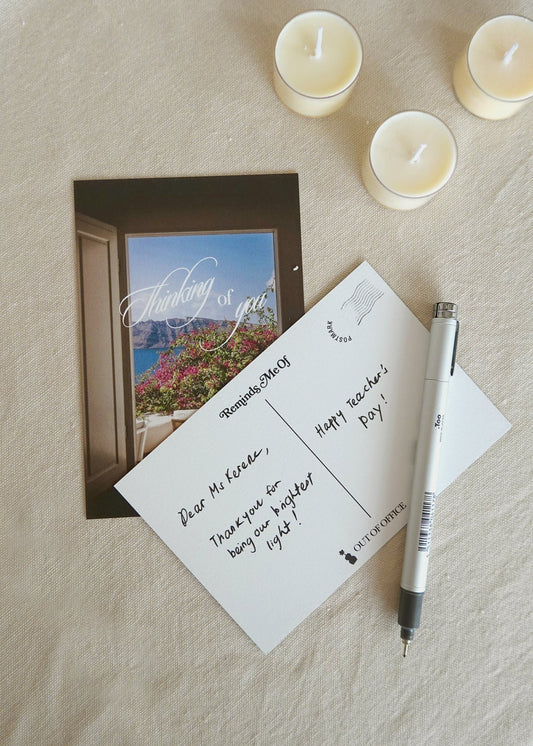 Thinking of you
POSTMARK
Reminds Me Of
Dear Ms Kerene,
Thank you for
being our brightest
light!
Happy Teacher's
Day!
OUT OF OFFICE
.Too